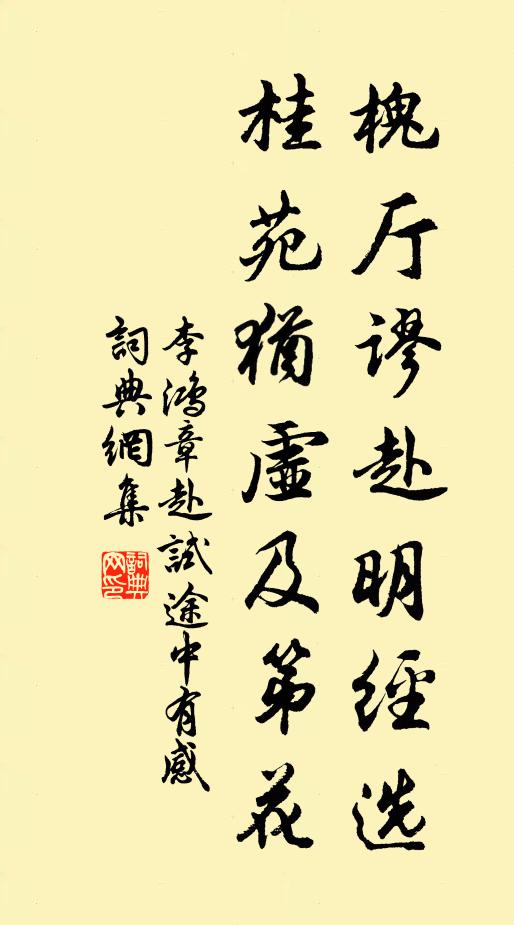 槐厅谬赴明經选
桂苑猶虛及第花
李鴻章赴試途中有感
詞典網集
詞典
网印